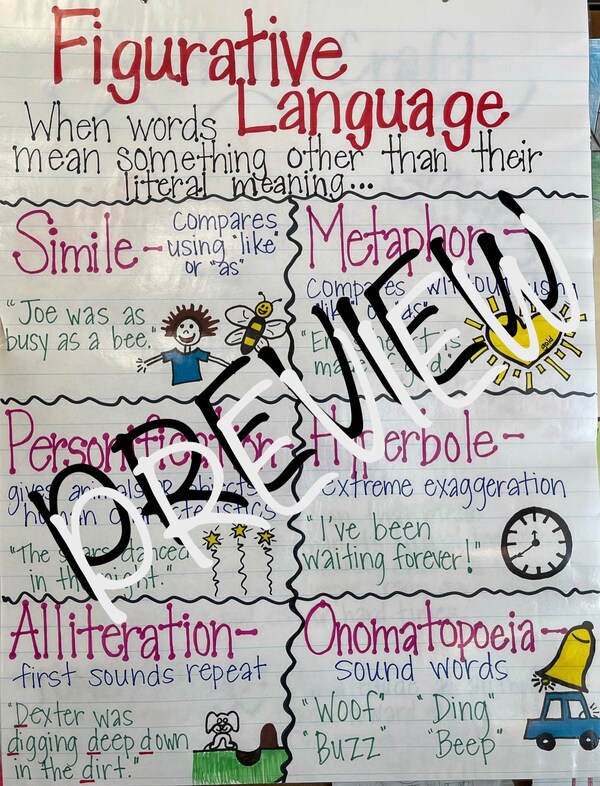 Figurative
Language
When words
mean something other than their
literal meaning...
Simile-
Compares
using "like"
or "as"
"Joe was as
busy as a bee."
Metaphor-
Compares without using
"like" or "as"
"Em's heart is
made of gold."
gold
Personification-
gives animals or objects
human characteristics
"The stars danced
in the night."
Hyperbole-
extreme exaggeration
"I've been
waiting forever!"
Alliteration-
first sounds repeat
"Dexter was
digging deep down
in the dirt."
Onomatopoeia-
sound words
"Woof" "Ding"
"Buzz" "Beep"
PREVIEW